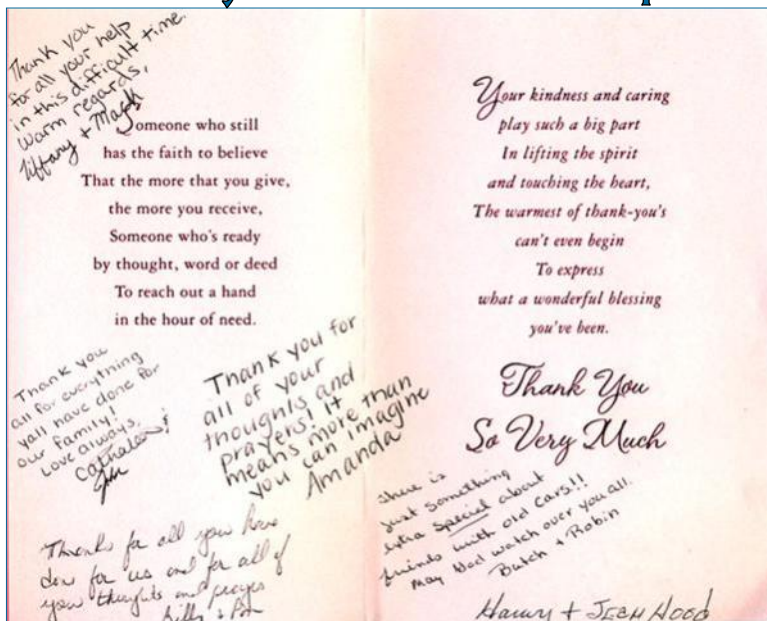 Thank you
for all your help
in this difficult time.
Warm regards,
Tiffany + Mark
Someone who still
has the faith to believe
That the more that you give,
the more you receive,
Someone who's ready
by thought, word or deed
To reach out a hand
in the hour of need.
Thank you
all for everything
yall have done for
our family!
Love always,
Thank you for
all of your
thoughts and
prayers! It
means more than
you can imagine
Amanda
Thanks for all you have
don for us and for all of
your thoughts and prayers
Your kindness and caring
play such a big part
In lifting the spirit
and touching the heart,
The warmest of thank-you's
can't even begin
To express
what a wonderful blessing
you've been.
Thank You
So Very Much
There is
just something
extra special about
friends with old cars!!
May God watch over you all.
Butch + Robin
Harvey + Jean Hood